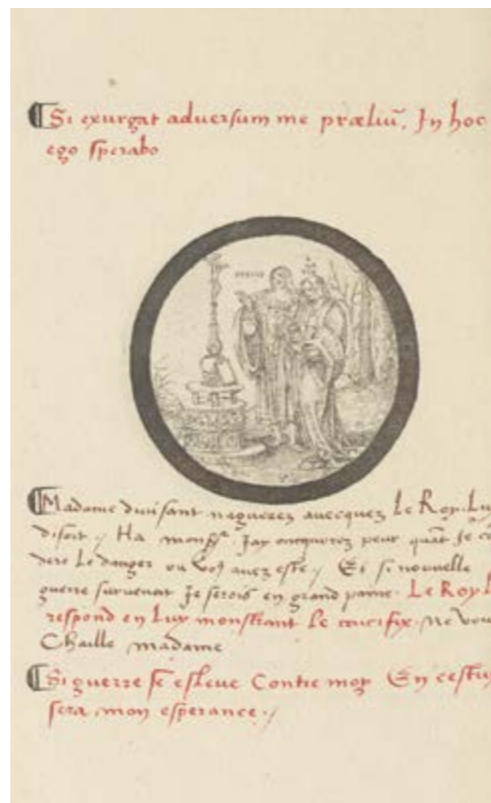 Si exurgat adversum me præliũ, In hoc
ego sperabo
Madame divisant nagueres avecquez Le Roy. Luy
disoit / Ha monsr. Jay encques peur quãt je co
dere Le danger ou vos avez este / Et si nouvelle
guerre survenoit je serois en grand paine. Le Roy L
respond en Luy monstrant Le crucifix. Ne vou
Chaille madame
Si guerre se esleve Contre moy En cestuy
sera mon esperance /